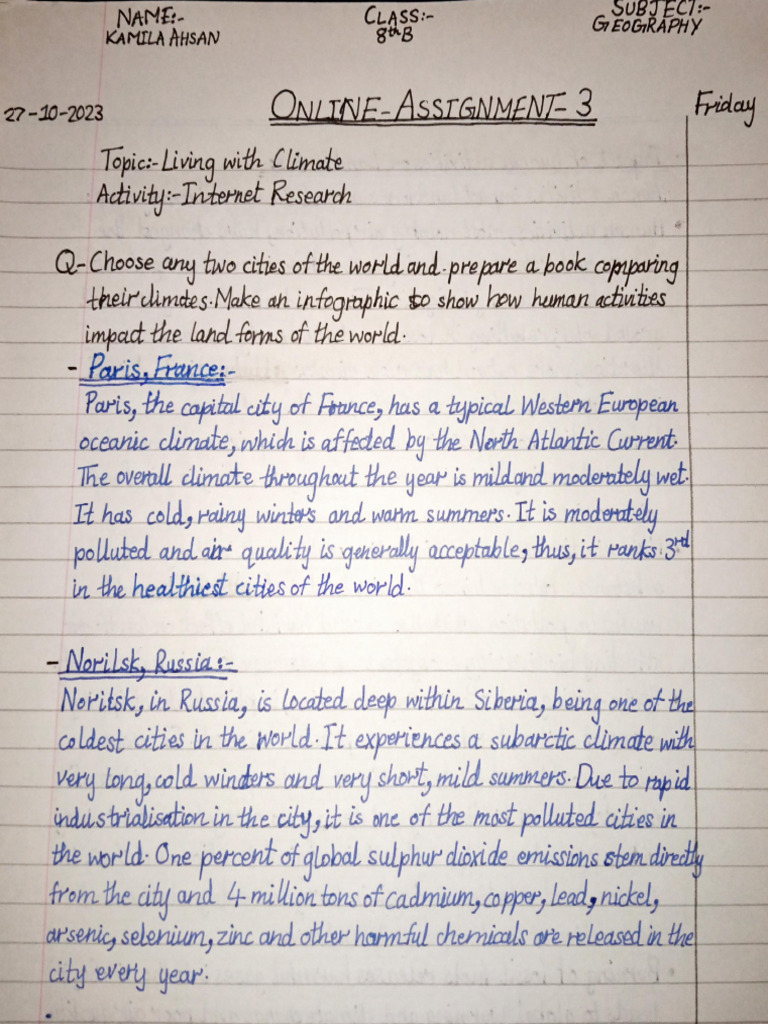 NAME:- CLASS:- SUBJECT:-
KAMILA AHSAN 8th B GEOGRAPHY
27-10-2023 ONLINE-ASSIGNMENT-3 Friday
Topic:- Living with Climate
Activity:- Internet Research
Q- Choose any two cities of the world and prepare a book comparing
their climates. Make an infographic to show how human activities
impact the land forms of the world.
- Paris, France:-
Paris, the capital city of France, has a typical Western European
oceanic climate, which is affected by the North Atlantic Current.
The overall climate throughout the year is mild and moderately wet.
It has cold, rainy winters and warm summers. It is moderately
polluted and air quality is generally acceptable, thus, it ranks 3rd
in the healthiest cities of the world.
- Norilsk, Russia:-
Norilsk, in Russia, is located deep within Siberia, being one of the
coldest cities in the world. It experiences a subarctic climate with
very long, cold winters and very short, mild summers. Due to rapid
industrialisation in the city, it is one of the most polluted cities in
the world. One percent of global sulphur dioxide emissions stem directly
from the city and 4 million tons of cadmium, copper, lead, nickel,
arsenic, selenium, zinc and other harmful chemicals are released in the
city every year.